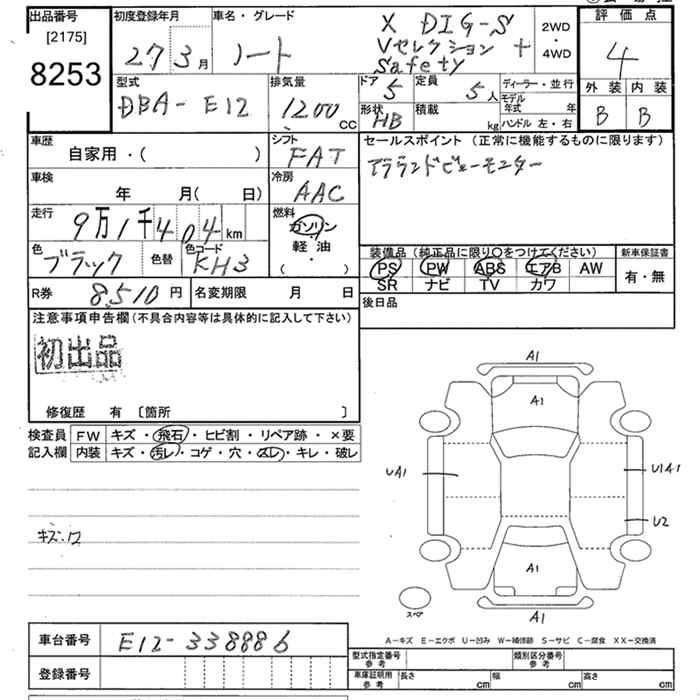 出品番号
[2175]
8253
初度登録年月
27年3月
車名・グレード
ノート
X DIG-S
Vセレクション+
Safety
2WD
・
4WD
評価点
4
外装 内装
B B
型式
DBA-E12
排気量
1200cc
ドア
5
定員
5人
形状
HB
積載
kg
ディーラー・並行
モデル年式 年
ハンドル 左・右
車歴
自家用・( )
シフト
FAT
車検
年 月(日)
冷房
AAC
走行
9万1千404km
燃料
ガソリン
軽油
・( )
色
ブラック
色替
色コード
KH3
R券
8,510円
名変期限 月 日
セールスポイント(正常に機能するものに限ります)
アラランドビューモニター
装備品(純正品に限り〇をつけてください)
PS PW ABS エアB AW
SR ナビ TV カワ
新車保証書
有・無
後日品
注意事項申告欄(不具合内容等は具体的に記入して下さい)
初出品
修復歴 有 〔箇所 〕
検査員
記入欄
FW キズ・飛石・ヒビ割・リペア跡・×要
内装 キズ・汚レ・コゲ・穴・スレ・キレ・破レ
キズ・ワ
A1
A1
UA1
U1A1
U2
A1
A1
スペア
A-キズ E-エクボ U-凹み W-補修跡 S-サビ C-腐食 XX-交換済
車台番号
E12-338886
登録番号
型式指定番号
参考
類別区分番号
参考
車庫証明用
参考
長さ cm
幅 cm
高さ cm